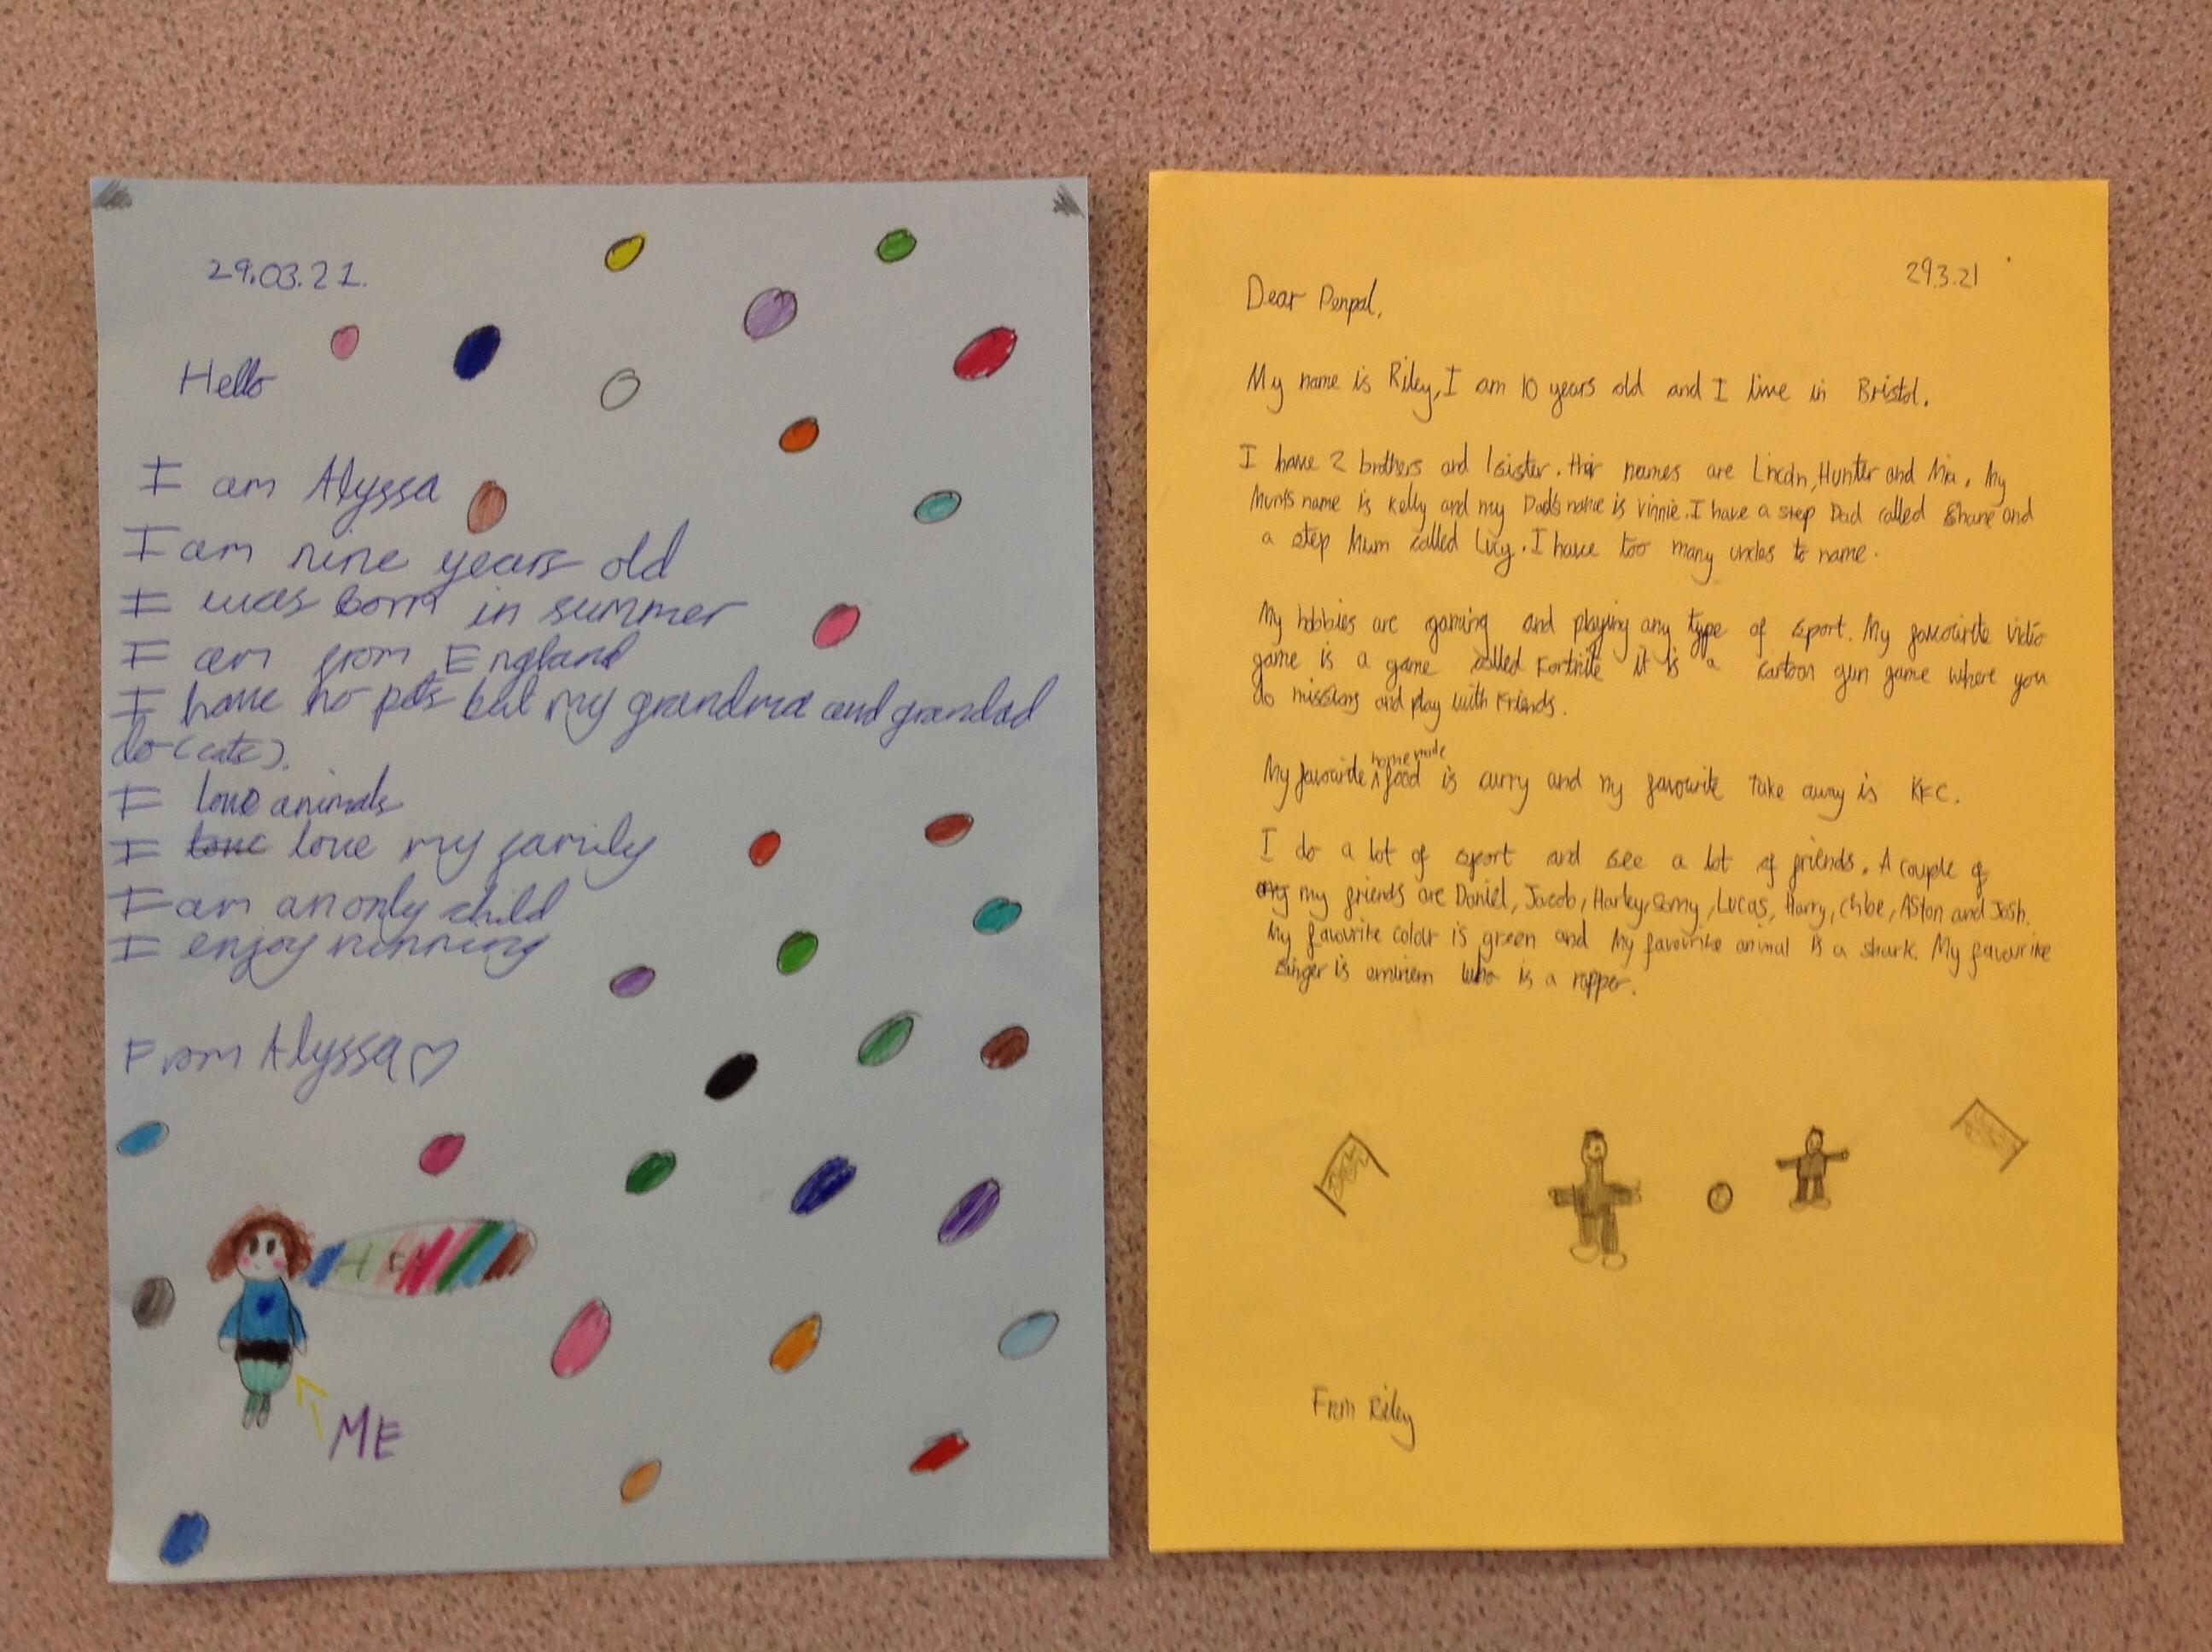 29.03.21.
Hello
I am Alyssa
I am nine years old
I was Born in summer
I am from England
I have no pets but my grandma and grandad
do (cats).
I love animals
I love love my family
I am an only child
I enjoy running
From Alyssa♡
HEY
ME
29.3.21
Dear Penpal,
My name is Riley, I am 10 years old and I live in Bristol.
I have 2 brothers and 1 sister. their names are Lincoln, Hunter and Mia. My
Mum's name is Kelly and my Dad's name is Vinnie. I have a step Dad called Shane and
a step Mum called Lucy. I have too many uncles to name.
My hobbies are gaming and playing any type of sport. My favourite vidio
game is a game called Fortnite it is a cartoon gun game where you
do missions and play with friends.
My favourite home made food is curry and my favourite take away is KFC.
I do a lot of sport and see a lot of friends. A couple of
my friends are Daniel, Jacob, Harley, Lucas, Harry, Chloe, Aston and Josh.
My favourite colour is green and My favourite animal is a shark. My favourite
singer is eminem who is a rapper.
From Riley